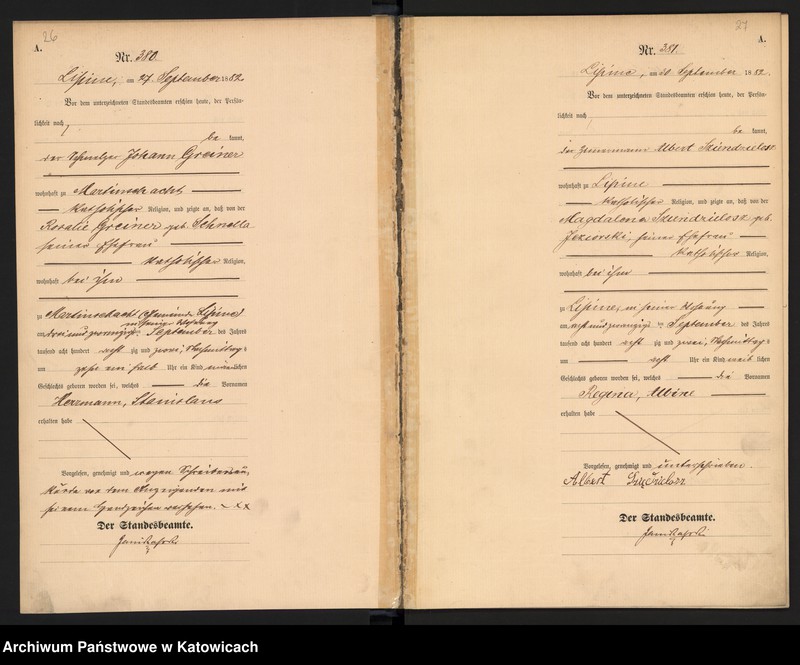 26
A.
Nr. 380.
Lipine, am 27 September 1882
Vor dem unterzeichneten Standesbeamten erschien heute, der Persön-
lichkeit nach
be kannt,
der Schmelzer Johann Greiner
wohnhaft zu Martinschacht
katholischer Religion, und zeigte an, daß von der
Rosalie Greiner geb. Schnella
seiner Ehefrau
katholischer Religion,
wohnhaft bei ihm
zu Martinschacht Gemeinde Lipine
in seiner Wohnung
am drei und zwanzigsten September des Jahres
tausend acht hundert acht zig und zwei, Vormittags
um zehn ein halb Uhr ein Kind männlichen
Geschlechts geboren worden sei, welches die Vornamen
Herrmann, Stanislaus
erhalten habe
Vorgelesen, genehmigt und wegen Schreibens un-
kunde von dem Anzeigenden mit
seinem Handzeichen versehen. xxx
Der Standesbeamte.
27
A.
Nr. 381.
Lipine, am 30 September 1882.
Vor dem unterzeichneten Standesbeamten erschien heute, der Persön-
lichkeit nach
be kannt,
der Zimmermann Albert
wohnhaft zu Lipine
katholischer Religion, und zeigte an, daß von der
Magdalena geb.
Jeziorski, seiner Ehefrau
katholischer Religion,
wohnhaft bei ihm
zu Lipine, in seiner Wohnung
am acht und zwanzigsten September des Jahres
tausend acht hundert acht zig und zwei, Vormittags
um acht Uhr ein Kind weib lichen
Geschlechts geboren worden sei, welches die Vornamen
Regina, Albine
erhalten habe
Vorgelesen, genehmigt und unterschrieben.
Albert
Der Standesbeamte.
Archiwum Państwowe w Katowicach